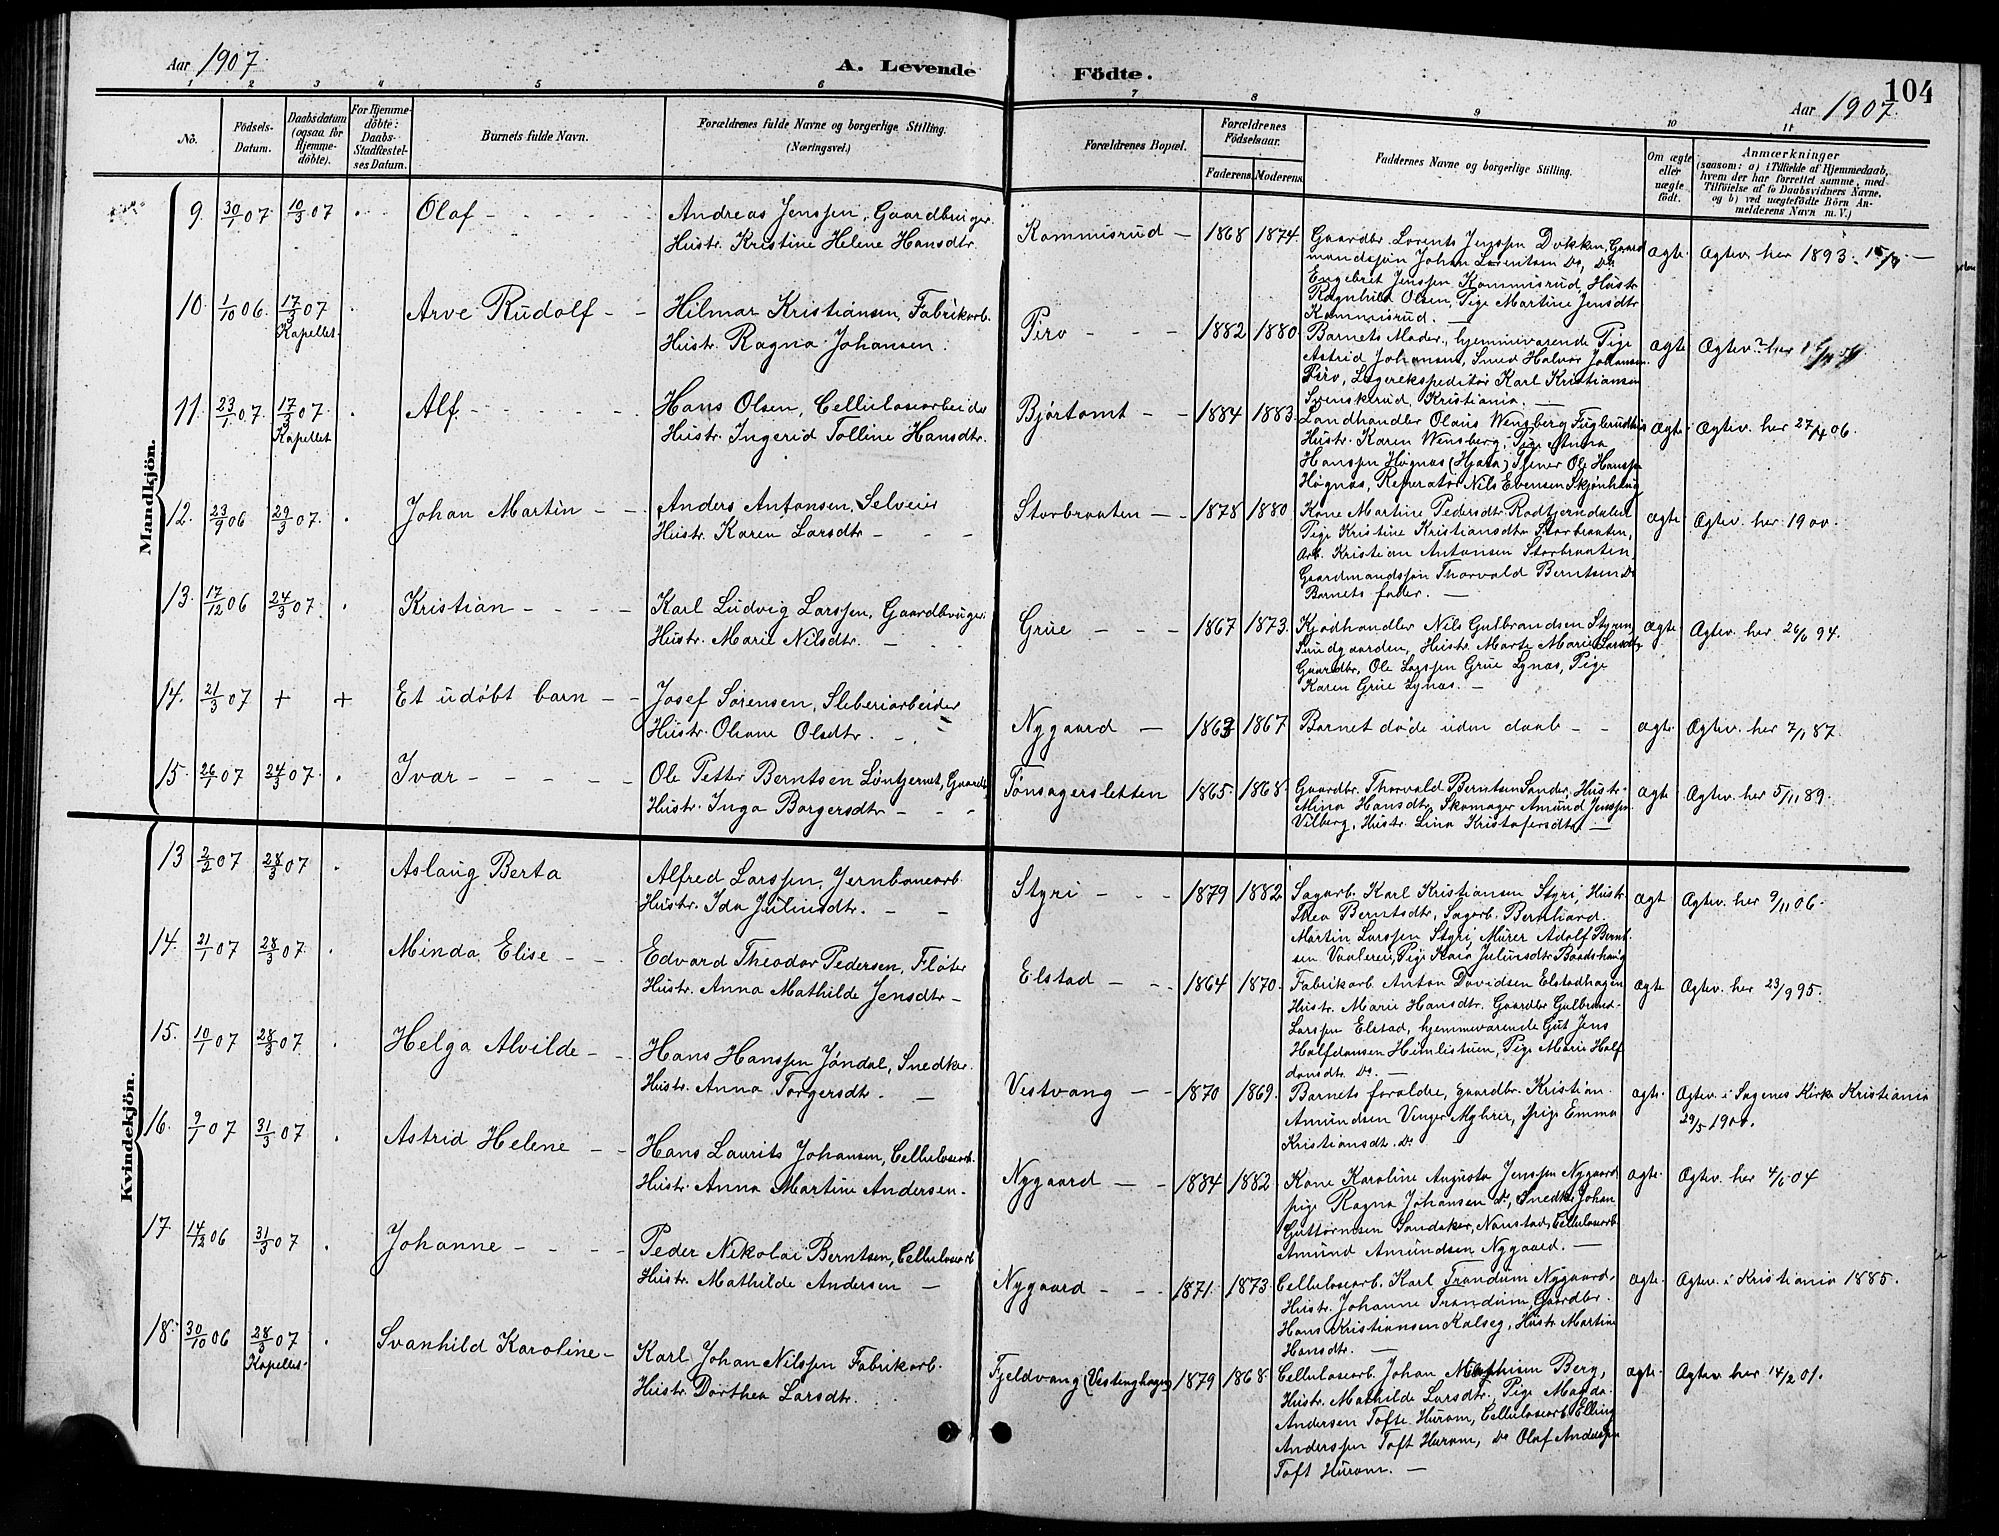 Aar 1907.
A. Levende Födte.
104
Aar 1907.
1 2 3 4 5 6 7 8 9 10 11
No.
Födsels-Datum.
Daabsdatum (ogsaa for Hjemme-döbte).
For Hjemme-döbte: Daabs-Stadfæstel-ses Datum.
Barnets fulde Navn.
Forældrenes fulde Navne og borgerlige Stilling. (Næringsvei.)
Forældrenes Bopæl.
Forældrenes Födselsaar.
Faderens. Moderens.
Faddernes Navne og borgerlige Stilling.
Om ægte eller uægte födt.
Anmærkninger
(saasom: a) i Tilfælde af Hjemmedaab, hvem der har forrettet samme, med Tilföielse af to Daabsvidners Navne, og b) ved uægtefödte Börn An-melderens Navn m. V.)
Mandkjön.
9. 30/1 07 10/3 07 Olaf
Andreas Jenssen, Gaardbruger.
Hustr. Kristine Helene Hansdtr.
Kommisrud 1868 1874.
Gaardbr. Lorents Jenssen Dokken, Gaard
mandssøn Johan Lorentsen Do, Do
Engebret Jenssen Kommisrud, Hustr
Ragnhild Olsen, Pige Martine Jensdtr
Kommisrud.
ægte. Ægtev. her 1893.
10. 1/10 06. 17/3 07 Kapellet Arve Rudolf
Hilmar Kristiansen, Fabrikarb.
Hustr. Ragna Johansen.
Piro 1882 1880.
Barnets Moder, hjemmeværende Pige
Astrid Johansen, Smed Halvor Johansen
Piro, Lagerekspeditør Karl Kristiansen
Svenskerud, Kristiania.
ægte Ægtev. her
11. 23/1 07 17/3 07 Kapellet Alf.
Hans Olsen, Cellulosearbeider
Hustr. Ingerid Tolline Hansdtr.
Bjørtomt 1884 1883.
Landhandler Olaus Wensberg
Hustr. Karen Wensberg, Pige Anna
Hanssen Høgnas (Hjera) Tjener Ole Hanssen
Høgnas, Reperatør Nils Evensen Skjønhaug
ægte Ægtev. her 27/4 06.
12. 23/9 06 29/3 07. Johan Martin
Anders Antonsen, Selveier
Hustr. Karen Larsdtr
Storbraaten 1878 1880
Kone Martine Pedersdtr Rodtjernsdalen
Pige Kristine Kristiansdtr Storbraaten,
Arb. Kristian Antonsen Storbraaten
Gaardmandssøn Thorvald Berntsen Do
Barnets fader.
ægte Ægtev. her 1900.
13. 17/12 06 24/3 07. Kristian
Karl Ludvig Larssen, Gaardbruger
Hustr. Marie Nilsdtr.
Grue 1867 1873.
Kjødhandler Nils Gulbrandsen Styren
Sundgaarden, Hustr. Marte Marie Larsdtr
Gaardbr. Ole Larssen Grue Lynas, Pige
Karen Grue Lynas.
ægte Ægtev. her 26/6 94.
14. 21/3 07 + + Et udøbt barn
Josef Sørensen, Sliberiarbeider
Hustr. Oliane Olsdtr.
Nygaard 1863 1867
Barnet døde uden daab
ægte. Ægtev. her 7/1 87.
15. 26/1 07 24/3 07. Ivar
Ole Petter Berntsen Løntjernet, Gaardb
Hustr. Inga Borgersdtr
Tønsagersletten 1865. 1868.
Gaardbr. Thorvald Berntsen Sander, Hustr
Mina Hansdtr, Skomager Amund Jenssen
Vilberg, Hustr. Lina Kristofersdtr.
ægte Ægtev. her 5/11 89.
Kvindekjön.
13 2/2 07 28/3 07. Aslaug Berta
Alfred Larssen, Jernbanearb.
Hustr. Ida Juliusdtr.
Styri 1879 1882
Sagarb. Karl Kristiansen Styri, Hustr.
Thea Berntsdtr, Sagarb. Bernhard
Martin Larssen Styri, Murer Adolf Bernt-
sen Vaaleren, Pige Kaia Juliusdtr Baadshaug
ægte Ægtev. her 9/11 06.
14. 21/1 07 28/3 07. Minda Elise
Edvard Theodor Pedersen, Fløter
Hustr. Anna Mathilde Jensdtr
Elstad 1864 1870.
Fabrikarb. Anton Davidsen Elstadhagen
Hustr. Marie Hansdtr. Gaardbr Gulbrand
Larssen Elstad, hjemmeværende Gut Jens
Halfdansen Himlistuen, Pige Marie Half
dansdtr. Do.
ægte Ægtev. her 23/9 95.
15. 10/1 07 28/3 07. Helga Alvilde
Hans Hanssen Jøndal, Snedker.
Hustr. Anna Torgersdtr.
Vestvang 1870 1869.
Barnets forældre, gaardbr. Kristian
Amundsen Vinger Myhrer, pige Emma
Kristiansdtr. Do
ægte. Ægtev. i Sagenes Kirke Kristiania
29/5 1900.
16. 9/1 07 31/3 07 Astrid Helene
Hans Laurits Johansen, Cellulosearb.
Hustr. Anna Martine Andersen.
Nygaard 1884 1882
Kone Karoline Augusta Jenssen Nygaard
pige Ragna Johansen Do, Snedker Johan
Guttormsen Sandaker, Nanstad, Cellulosearb
Amund Amundsen Nygaard.
ægte. Ægtev. her 4/6 04
17 14/12 06 31/3 07. Johanne
Peder Nikolai Berntsen, Cellulosearb
Hustr. Mathilde Andersen
Nygaard 1871. 1873
Cellulosearb. Karl Trandum Nygaard.
Hustr. Johanne Trandum, Gaardbr.
Hans Kristiansen Kalseg, Hustr Martine
Hansdtr.
ægte. Ægtev. i Kristiania 1885.
18. 30/10 06 28/3 07 Kapellet Svanhild Karoline
Karl Johan Nilssen Fabrikarb.
Hustr. Dorthea Larsdtr.
Fjeldvang (Vestenghagen) 1879 1868.
Cellulosearb. Johan Mathisen Berg,
Hustr. Mathilde Larsdtr. Pige Magda
Andersen Tofte Hurom, Cellulosearb Elling
Anderssen Toft Hurom, Do Olaf Anderssen
Toft Hurom.
ægte. Ægtev. her 14/2 01.